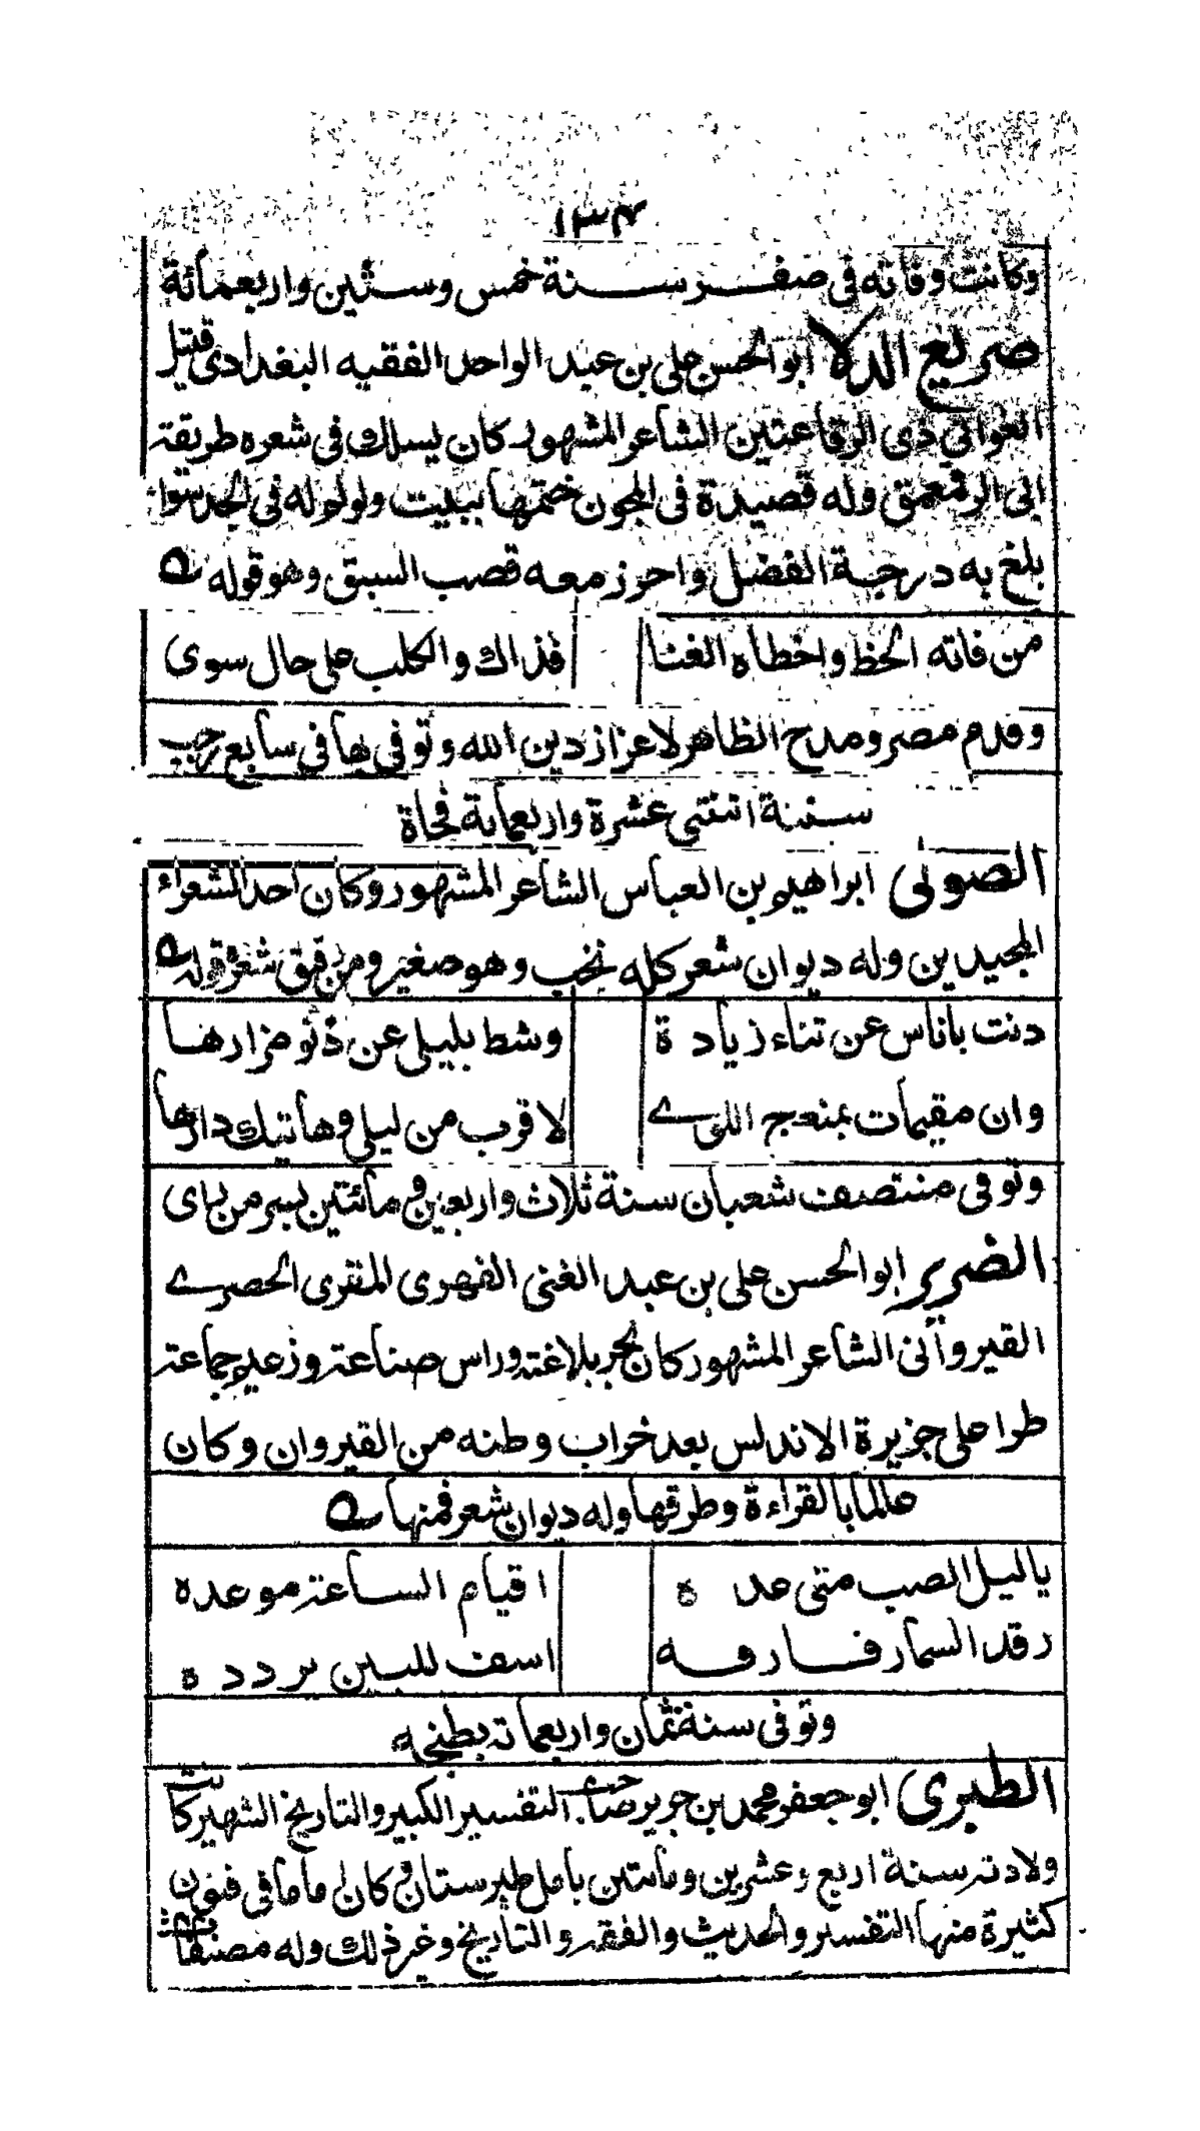 ١٣٤
وكانت وفاته فى صفر سنة خمس وستين واربعمائة
صريع الدلا ابو الحسن على بن عبد الواحد الفقيه البغدادى قتيل
الغوانى ذى الرقاعتين الشاعر المشهور كان يسلك فى شعره طريقة
ابى الرقعمق وله قصيدة فى المجون ختمها ببيت ولو لم له فى الجد سواه
بلغ به درجة الفضل واحرز معه قصب السبق وهو قوله
من فاته الحظ واخطاه الغنا فذاك والكلب على حال سوى
وقدم مصر ومدح الظاهر لاعزاز دين الله وتوفى بها فى سابع رجب
سنة اثنتى عشرة واربعماية فجاة
الصولى ابراهيم بن العباس الشاعر المشهور وكان احد الشعراء
المجيدين وله ديوان شعر كله نخب وهو صغير ومن رقيق شعره قوله
دنت باناس عن تناء زيادة وشط بليلى عن دنو مزارها
وان مقيمات بمنعج اللوى لا قرب من ليلى وهاتيك دارها
وتوفى منتصف شعبان سنة ثلاث واربعين ومائتين بسر من راى
الضرير ابو الحسن على بن عبد الغنى الفهرى المقرى الحصرى
القيروانى الشاعر المشهور كان بحر بلاغة وراس صناعة وزعيم جماعة
طرا على جزيرة الاندلس بعد خراب وطنه من القيروان وكان
عالما بالقراءة وطرقها وله ديوان شعر فمنها
ياليل الصب متى غده اقيام الساعة موعده
رقد السمار فارقه اسف للبين يردده
وتوفى سنة ثمان واربعماية بطنجه
الطبرى ابو جعفر محمد بن جرير صاحب التفسير الكبير والتاريخ الشهير كانت
ولادته سنة اربع وعشرين ومايتين بامل طبرستان وكان اماما فى فنون
كثيرة منها التفسير والحديث والفقه والتاريخ وغير ذلك وله مصنفات